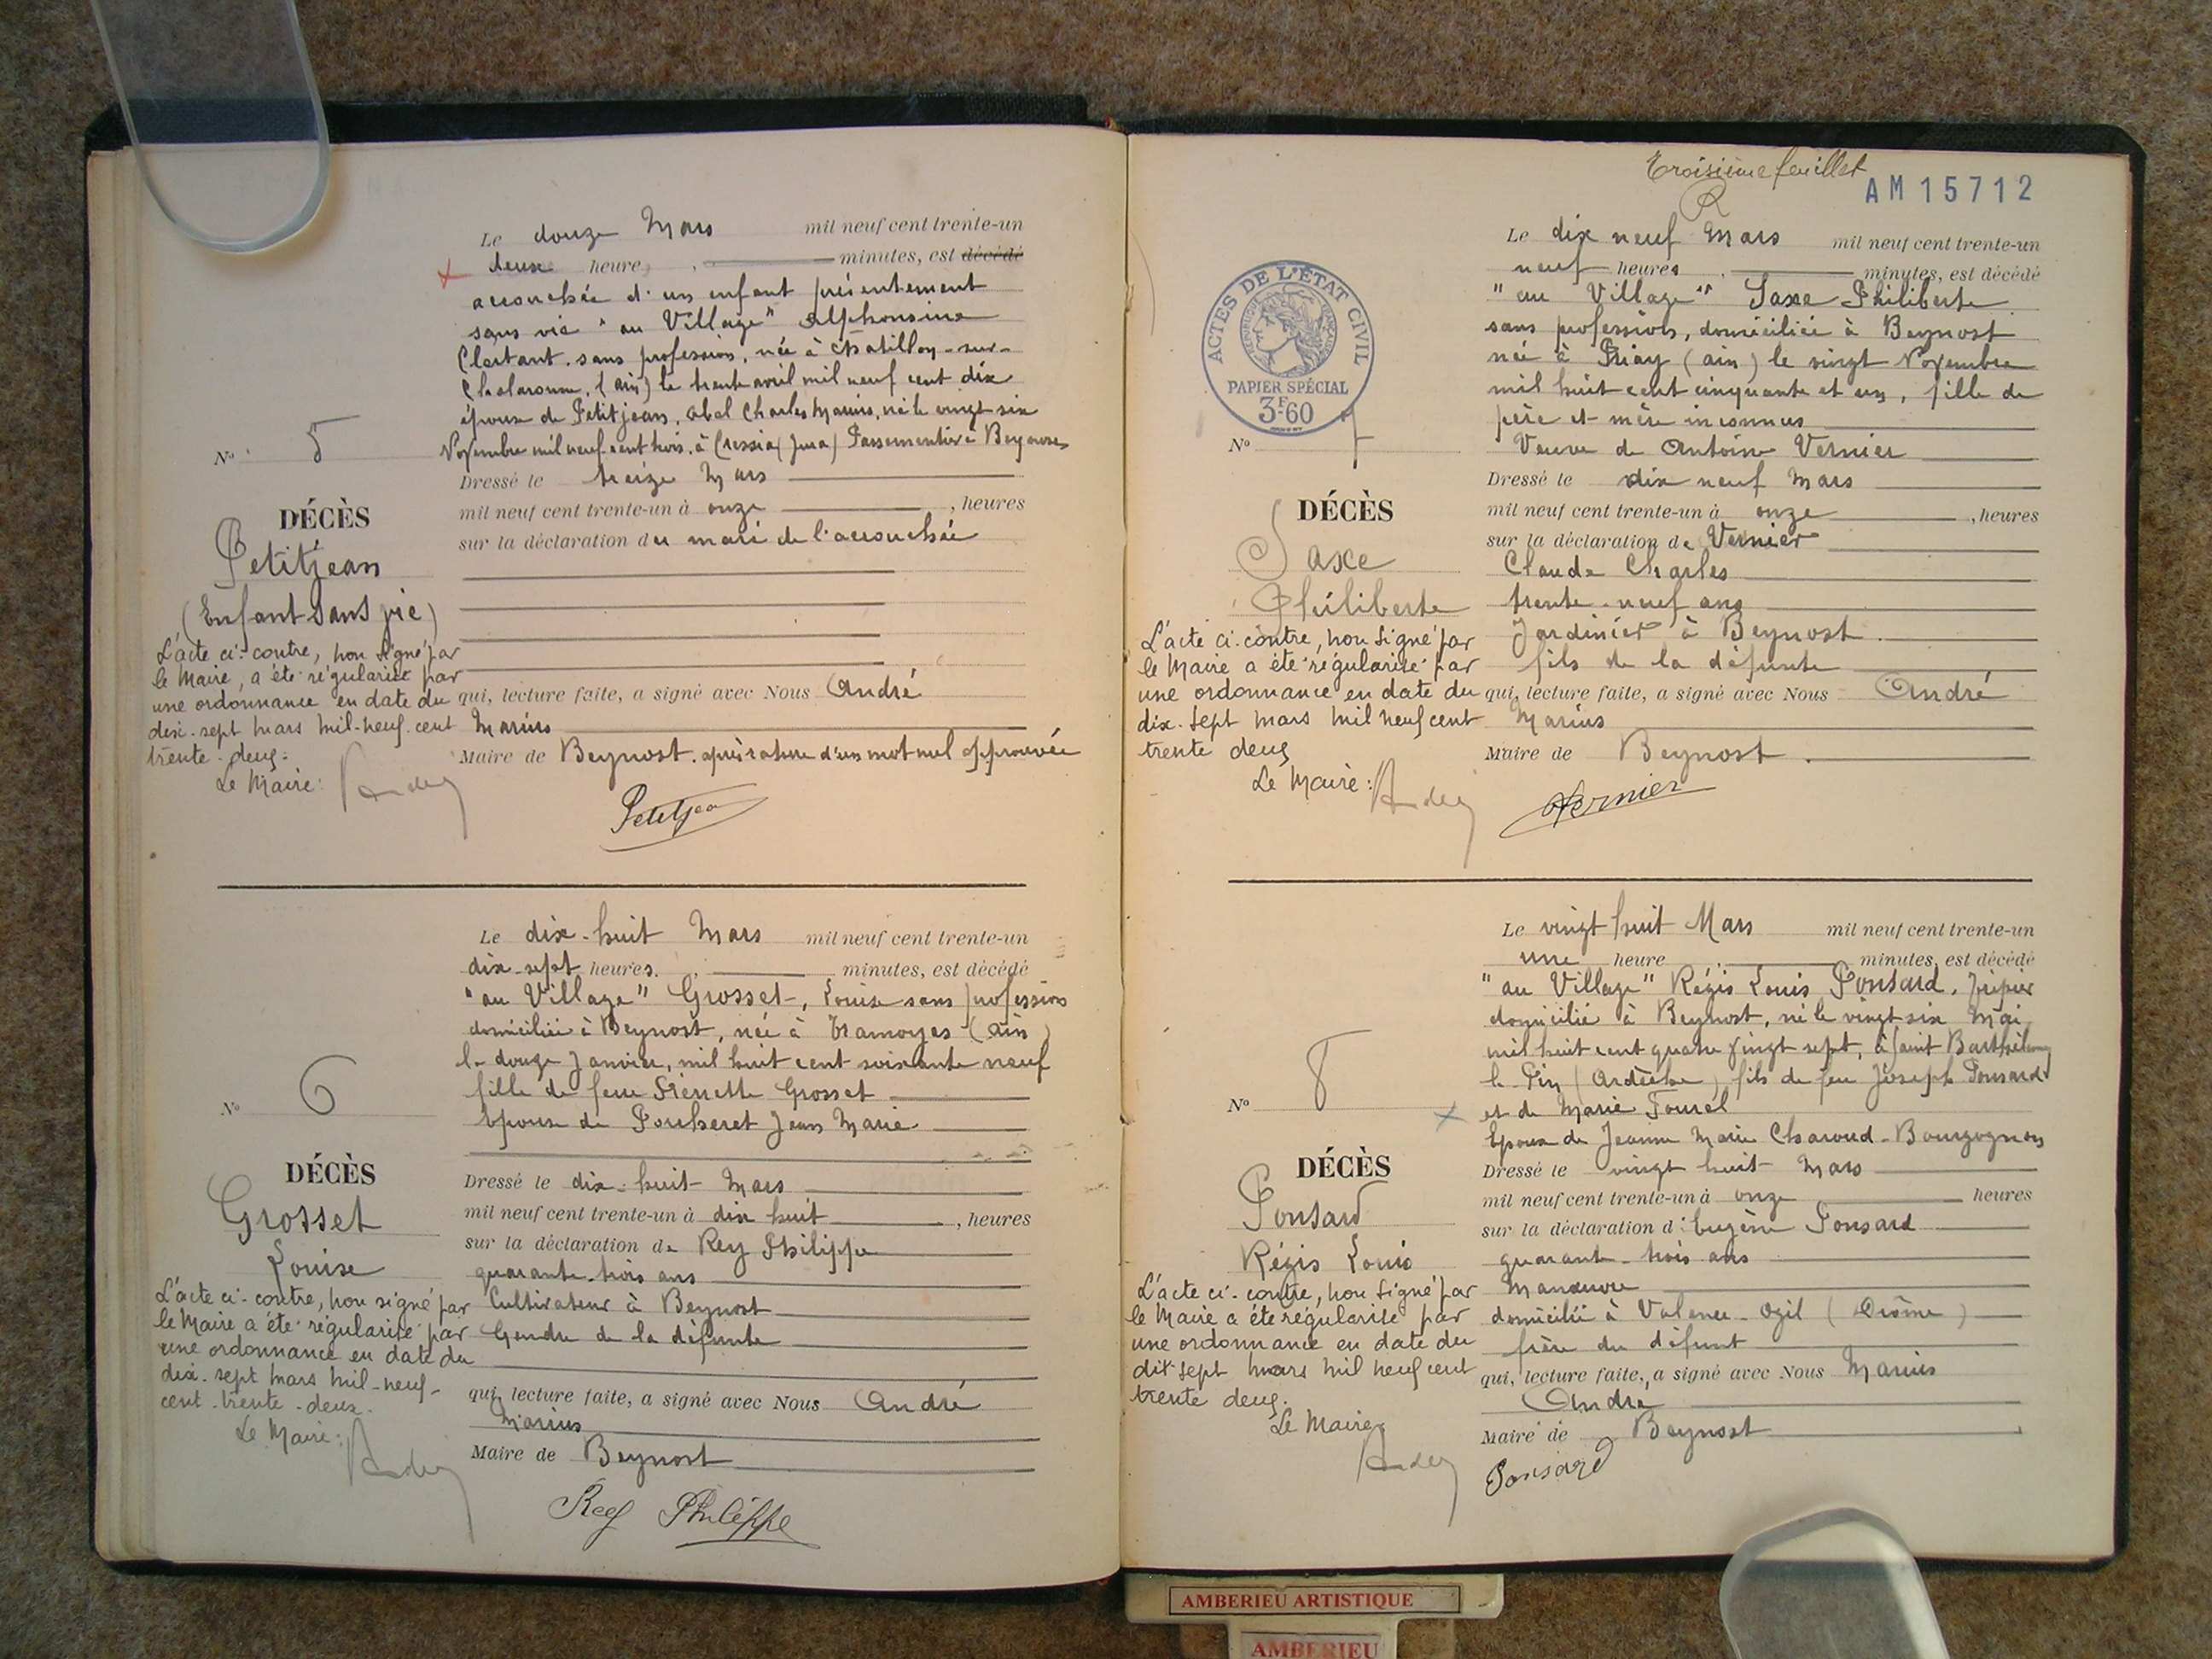 Le douze Mars mil neuf cent trente-un
deux heure, minutes, est décédé
accouchée d'un enfant présentement
sans vie "au Village" Alphonsine
sans profession, née à Chatillon-sur-
Chalaronne, (Ain) le trente avril mil neuf cent dix
épouse de Petitjean, Abel Charles Marius, né le vingt six
Novembre mil neuf cent trois, à Cressia (Jura) Passementier à
N° 5
Dressé le treize Mars
mil neuf cent trente-un à onze, heures
sur la déclaration du mari de l'accouchée
DÉCÈS
Petitjean
(Enfant sans vie)
L'acte ci-contre, non signé par
le Maire, a été régularisé par
une ordonnance en date du
dix-sept mars mil-neuf-cent
trente-deux.
Le Maire:
qui, lecture faite, a signé avec Nous André
Marius
Maire de Beynost. d'un mot nul approuvée
Petitjean
Le dix-huit Mars mil neuf cent trente-un
dix-sept heures, minutes, est décédé
"au Village" Grosset, Louise sans profession
domiciliée à Beynost, née à Tramoyes (Ain)
le douze Janvier, mil huit cent soixante neuf
fille de feue Pierrette Grosset
Epouse de Jean Marie
N° 6
DÉCÈS
Grosset
Louise
Dressé le dix-huit Mars
mil neuf cent trente-un à dix huit, heures
sur la déclaration de Rey Philippe
quarante-trois ans
Cultivateur à Beynost
Gendre de la défunte
L'acte ci-contre, non signé par
le Maire a été régularisé par
une ordonnance en date du
dix-sept mars mil-neuf-
cent-trente-deux.
Le Maire:
qui, lecture faite, a signé avec Nous André
Marius
Maire de Beynost
Rey Philippe
Troisième feuillet
AM 15712
ACTES DE L'ÉTAT CIVIL
RÉPUBLIQUE FRANÇAISE
PAPIER SPÉCIAL
3F60
Le dix neuf Mars mil neuf cent trente-un
neuf heures, minutes, est décédé
"au Village" Saxe Philiberte
sans profession, domiciliée à Beynost
née à Priay (Ain) le vingt Novembre
mil huit cent cinquante et un, fille de
père et mère inconnus
Veuve de Antoine Vernier
N° 7
DÉCÈS
Saxe
Philiberte
Dressé le dix neuf Mars
mil neuf cent trente-un à onze, heures
sur la déclaration de Vernier
Claude Charles
trente-neuf ans
Jardinier à Beynost
fils de la défunte
L'acte ci-contre, non signé par
le Maire a été régularisé par
une ordonnance en date du
dix-sept mars mil neuf cent
trente deux
Le Maire:
qui, lecture faite, a signé avec Nous André
Marius
Maire de Beynost.
Vernier
Le vingt huit Mars mil neuf cent trente-un
une heure, minutes, est décédé
"au Village" Régis Louis Ponsard, Tripier
domicilié à Beynost, né le vingt six Mai
mil huit cent quatre vingt sept, à Saint Barthélemy
le Pin (Ardèche) fils de feu Joseph Ponsard
et de Marie Fourel
Epoux de Jeanne Marie Charoud-Bourgognon
N° 8
DÉCÈS
Ponsard
Régis Louis
Dressé le vingt huit Mars
mil neuf cent trente-un à onze heures
sur la déclaration d'Eugène Ponsard
quarante-trois ans
Manœuvre
domicilié à Valence (Drôme)
frère du défunt
L'acte ci-contre, non signé par
le Maire a été régularisé par
une ordonnance en date du
dix-sept mars mil neuf cent
trente deux.
Le Maire
qui, lecture faite, a signé avec Nous Marius
André
Maire de Beynost
Ponsard
AMBERIEU ARTISTIQUE
AMBERIEU